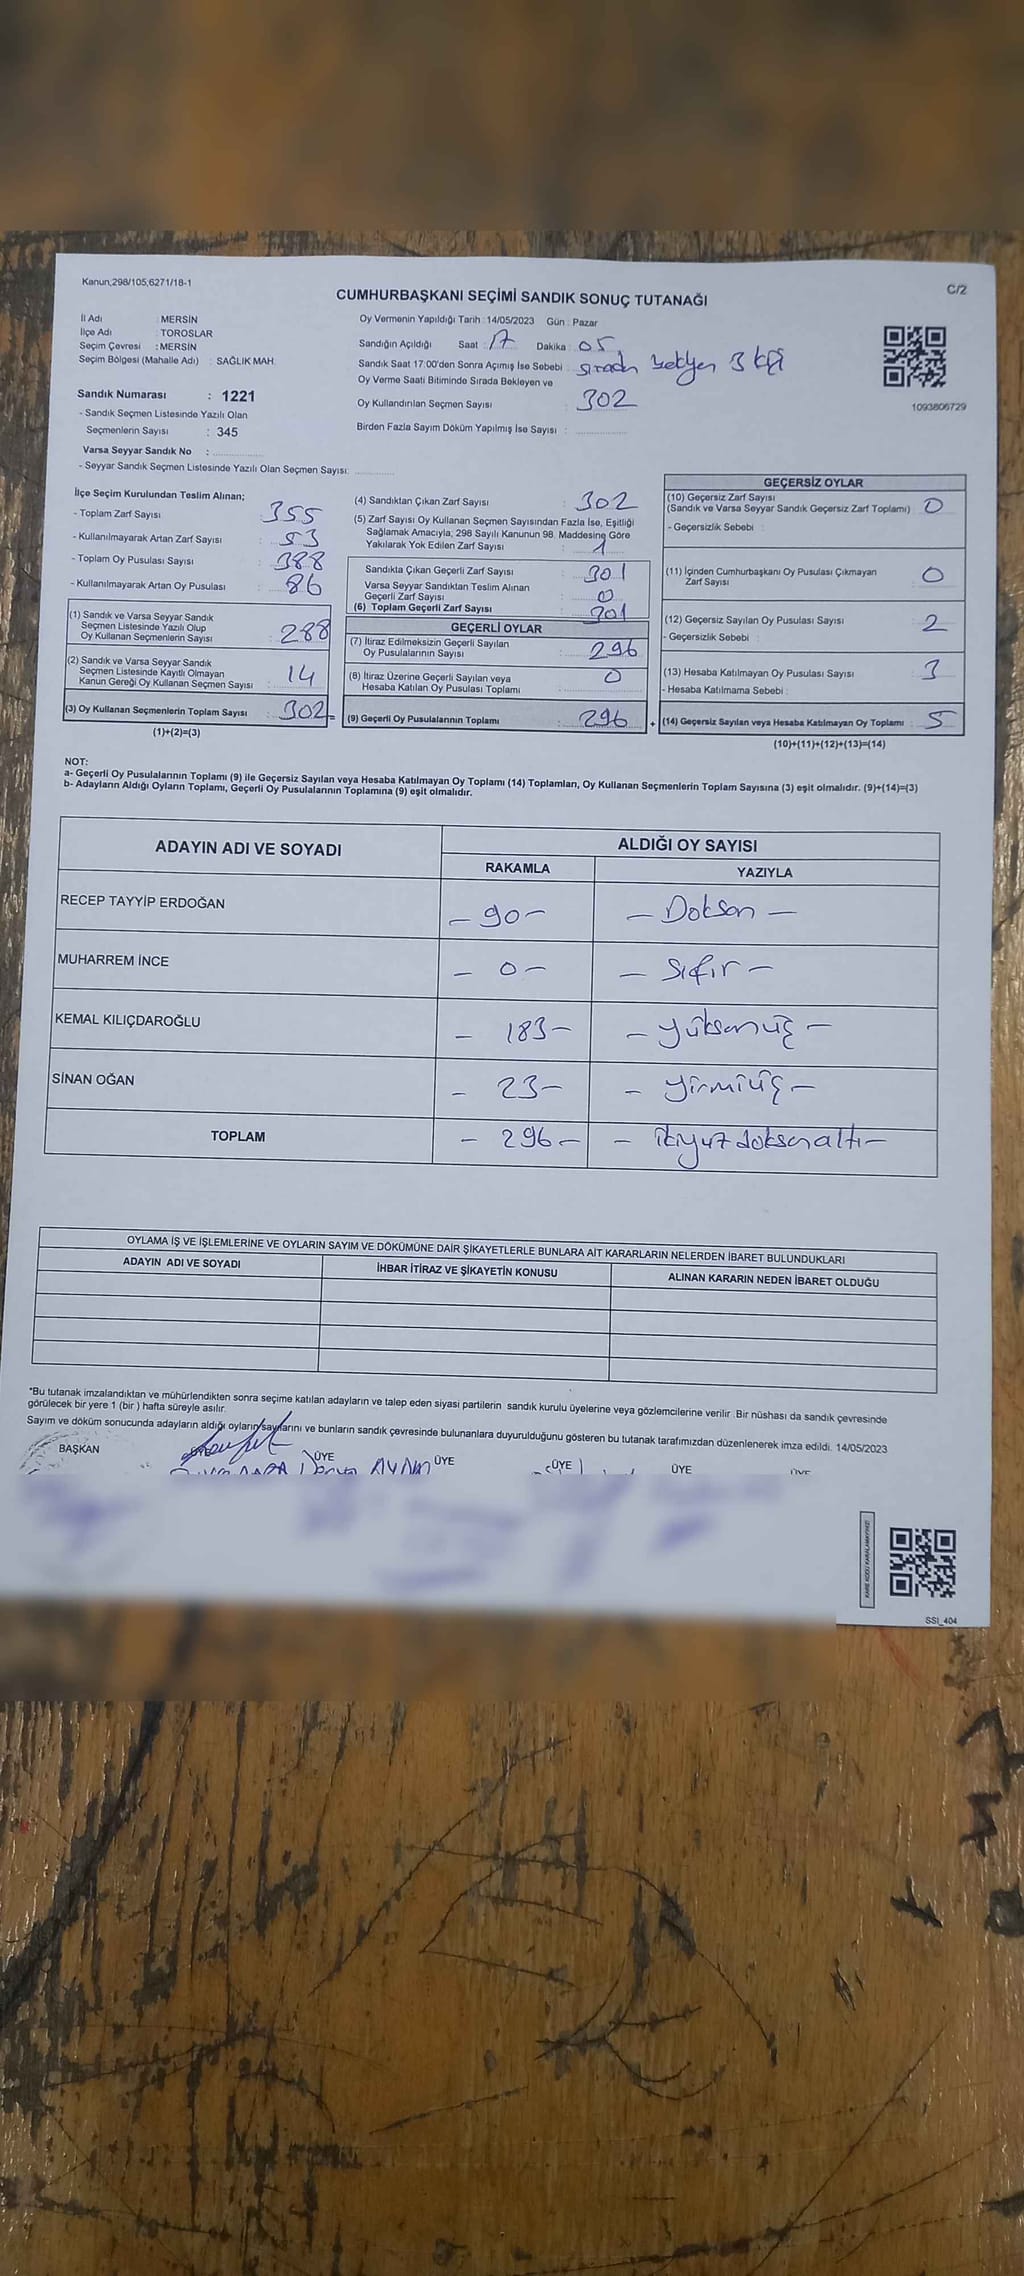 Kanun,298/105,6271/18-1
C/2
CUMHURBAŞKANI SEÇİMİ SANDIK SONUÇ TUTANAĞI
İl Adı : MERSİN
İlçe Adı : TOROSLAR
Seçim Çevresi : MERSİN
Seçim Bölgesi (Mahalle Adı) : SAĞLIK MAH.
Sandık Numarası : 1221
- Sandık Seçmen Listesinde Yazılı Olan
Seçmenlerin Sayısı : 345
Varsa Seyyar Sandık No :
- Seyyar Sandık Seçmen Listesinde Yazılı Olan Seçmen Sayısı:
Oy Vermenin Yapıldığı Tarih : 14/05/2023 Gün : Pazar
Sandığın Açıldığı Saat : 17 Dakika : 05
Sandık Saat 17:00'den Sonra Açımış İse Sebebi : sırada bekleyen 3 kişi
Oy Verme Saati Bitiminde Sırada Bekleyen ve
Oy Kullandırılan Seçmen Sayısı : 302
Birden Fazla Sayım Döküm Yapılmış İse Sayısı :
1093806729
İlçe Seçim Kurulundan Teslim Alınan;
- Toplam Zarf Sayısı : 355
- Kullanılmayarak Artan Zarf Sayısı : 53
- Toplam Oy Pusulası Sayısı : 388
- Kullanılmayarak Artan Oy Pusulası : 86
(1) Sandık ve Varsa Seyyar Sandık
Seçmen Listesinde Yazılı Olup
Oy Kullanan Seçmenlerin Sayısı : 288
(2) Sandık ve Varsa Seyyar Sandık
Seçmen Listesinde Kayıtlı Olmayan
Kanun Gereği Oy Kullanan Seçmen Sayısı : 14
(3) Oy Kullanan Seçmenlerin Toplam Sayısı : 302 =
(1)+(2)=(3)
(4) Sandıktan Çıkan Zarf Sayısı : 302
(5) Zarf Sayısı Oy Kullanan Seçmen Sayısından Fazla İse, Eşitliği
Sağlamak Amacıyla, 298 Sayılı Kanunun 98. Maddesine Göre
Yakılarak Yok Edilen Zarf Sayısı : 1
Sandıkta Çıkan Geçerli Zarf Sayısı : 301
Varsa Seyyar Sandıktan Teslim Alınan
Geçerli Zarf Sayısı : 0
(6) Toplam Geçerli Zarf Sayısı : 301
GEÇERLİ OYLAR
(7) İtiraz Edilmeksizin Geçerli Sayılan
Oy Pusulalarının Sayısı : 296
(8) İtiraz Üzerine Geçerli Sayılan veya
Hesaba Katılan Oy Pusulası Toplamı : 0
(9) Geçerli Oy Pusulalarının Toplamı : 296 +
GEÇERSİZ OYLAR
(10) Geçersiz Zarf Sayısı
(Sandık ve Varsa Seyyar Sandık Geçersiz Zarf Toplamı) : 0
- Geçersizlik Sebebi :
(11) İçinden Cumhurbaşkanı Oy Pusulası Çıkmayan
Zarf Sayısı : 0
(12) Geçersiz Sayılan Oy Pusulası Sayısı : 2
- Geçersizlik Sebebi :
(13) Hesaba Katılmayan Oy Pusulası Sayısı : 3
- Hesaba Katılmama Sebebi :
(14) Geçersiz Sayılan veya Hesaba Katılmayan Oy Toplamı : 5
(10)+(11)+(12)+(13)=(14)
NOT:
a- Geçerli Oy Pusulalarının Toplamı (9) ile Geçersiz Sayılan veya Hesaba Katılmayan Oy Toplamı (14) Toplamları, Oy Kullanan Seçmenlerin Toplam Sayısına (3) eşit olmalıdır. (9)+(14)=(3)
b- Adayların Aldığı Oyların Toplamı, Geçerli Oy Pusulalarının Toplamına (9) eşit olmalıdır.
ADAYIN ADI VE SOYADI
ALDIĞI OY SAYISI
RAKAMLA YAZIYLA
RECEP TAYYİP ERDOĞAN – 90 – – Doksan –
MUHARREM İNCE – 0 – – Sıfır –
KEMAL KILIÇDAROĞLU – 183 – – yüksenüç –
SİNAN OĞAN – 23 – – yirmiüç –
TOPLAM – 296 – – ikiyuz doksanaltı –
OYLAMA İŞ VE İŞLEMLERİNE VE OYLARIN SAYIM VE DÖKÜMÜNE DAİR ŞİKAYETLERLE BUNLARA AİT KARARLARIN NELERDEN İBARET BULUNDUKLARI
ADAYIN ADI VE SOYADI İHBAR İTİRAZ VE ŞİKAYETİN KONUSU ALINAN KARARIN NEDEN İBARET OLDUĞU
*Bu tutanak imzalandıktan ve mühürlendikten sonra seçime katılan adayların ve talep eden siyasi partilerin sandık kurulu üyelerine veya gözlemcilerine verilir. Bir nüshası da sandık çevresinde
görülecek bir yere 1 (bir ) hafta süreyle asılır.
Sayım ve döküm sonucunda adayların aldığı oyların sayılarını ve bunların sandık çevresinde bulunanlara duyurulduğunu gösteren bu tutanak tarafımızdan düzenlenerek imza edildi. 14/05/2023
BAŞKAN ÜYE ÜYE ÜYE ÜYE ÜYE ÜYE
SSI_404